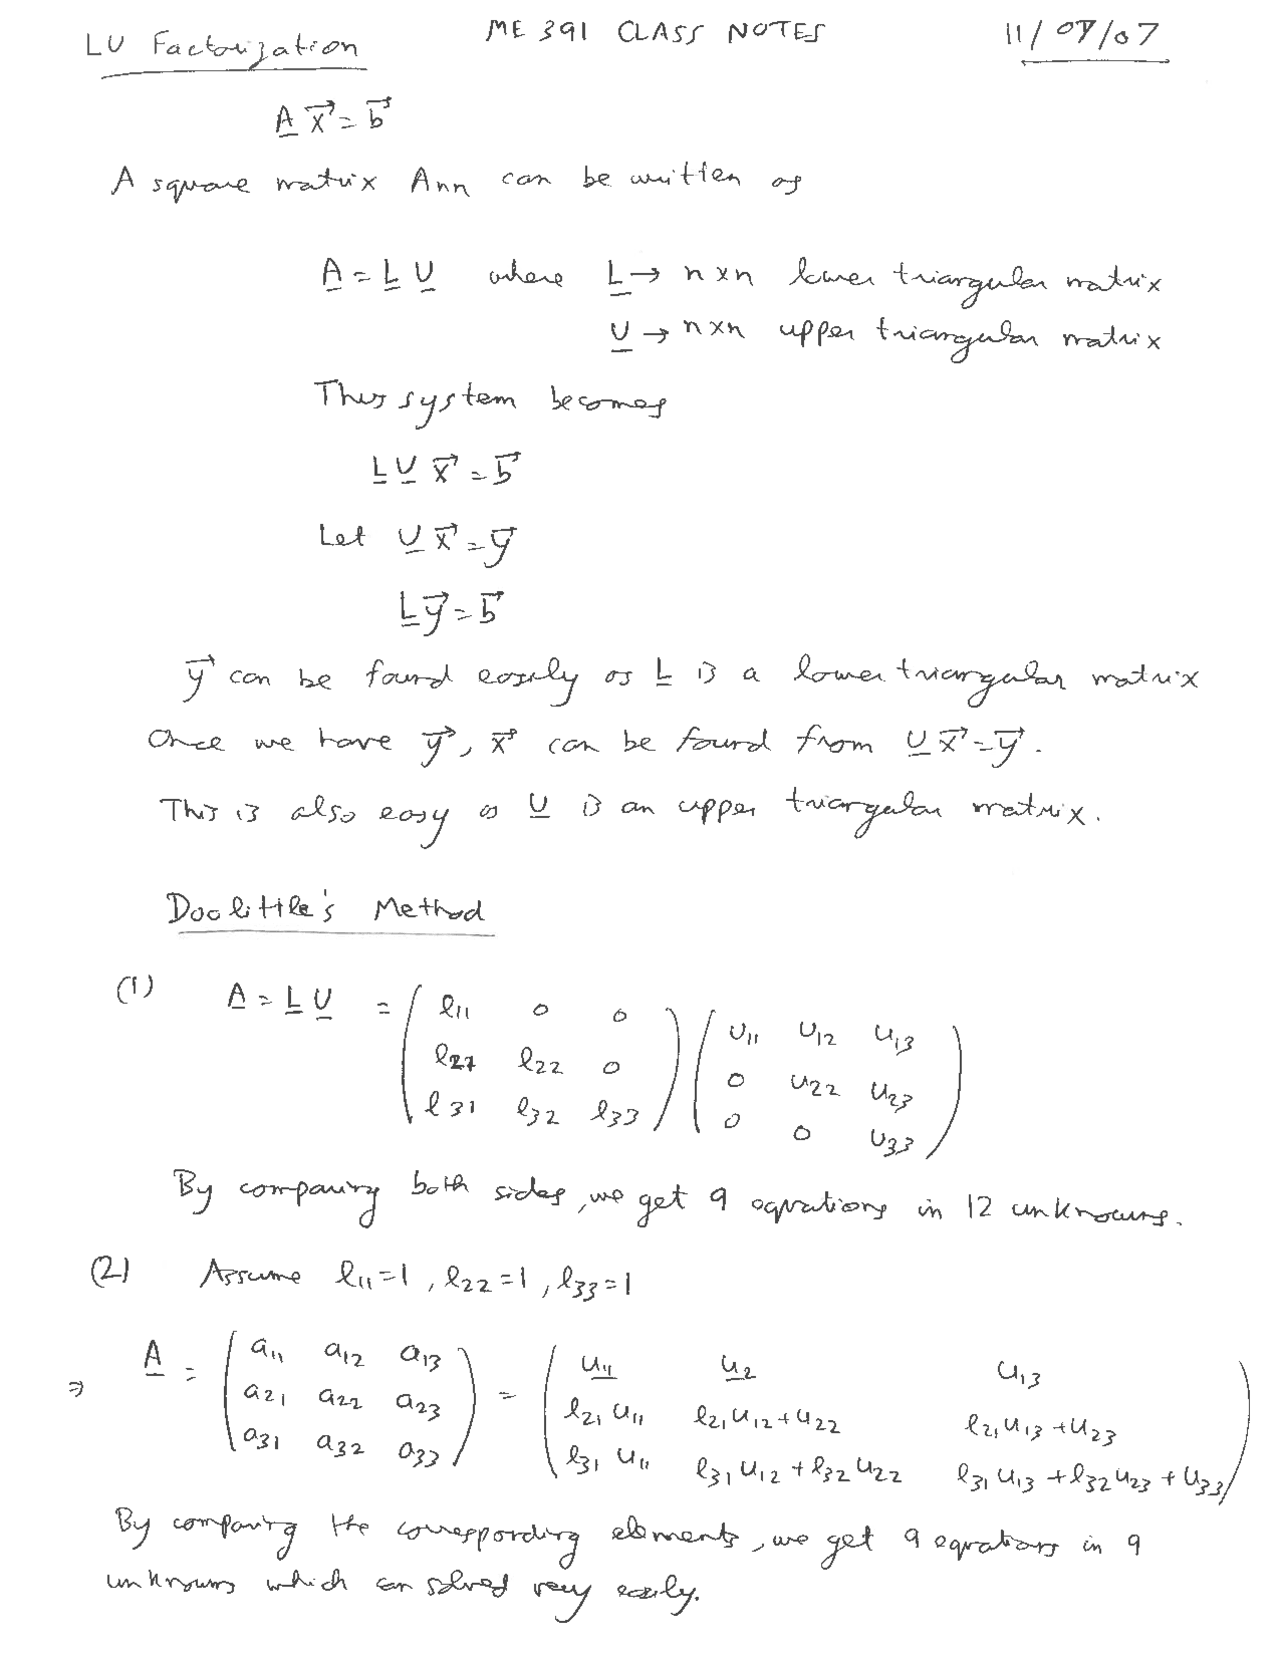 LU Factorization ME 391 CLASS NOTES 11/07/07
A x⃗ = b⃗
A square matrix Ann can be written as
A = L U where L → n×n lower triangular matrix
U → n×n upper triangular matrix
Thus system becomes
L U x⃗ = b⃗
Let U x⃗ = y⃗
L y⃗ = b⃗
y⃗ can be found easily as L is a lower triangular matrix
Once we have y⃗, x⃗ can be found from U x⃗ = y⃗.
This is also easy as U is an upper triangular matrix.
Doolittle's Method
(1) A = L U = ( l11 0 0 ) ( u11 u12 u13 )
( l21 l22 0 ) ( 0 u22 u23 )
( l31 l32 l33 ) ( 0 0 u33 )
By comparing both sides, we get 9 equations in 12 unknowns.
(2) Assume l11=1, l22=1, l33=1
⇒ A = ( a11 a12 a13 ) = ( u11 u2 u13 )
( a21 a22 a23 ) ( l21 u11 l21 u12 + u22 l21 u13 + u23 )
( a31 a32 a33 ) ( l31 u11 l31 u12 + l32 u22 l31 u13 + l32 u23 + u33 )
By comparing the corresponding elements, we get 9 equations in 9
unknowns which can solved very easily.